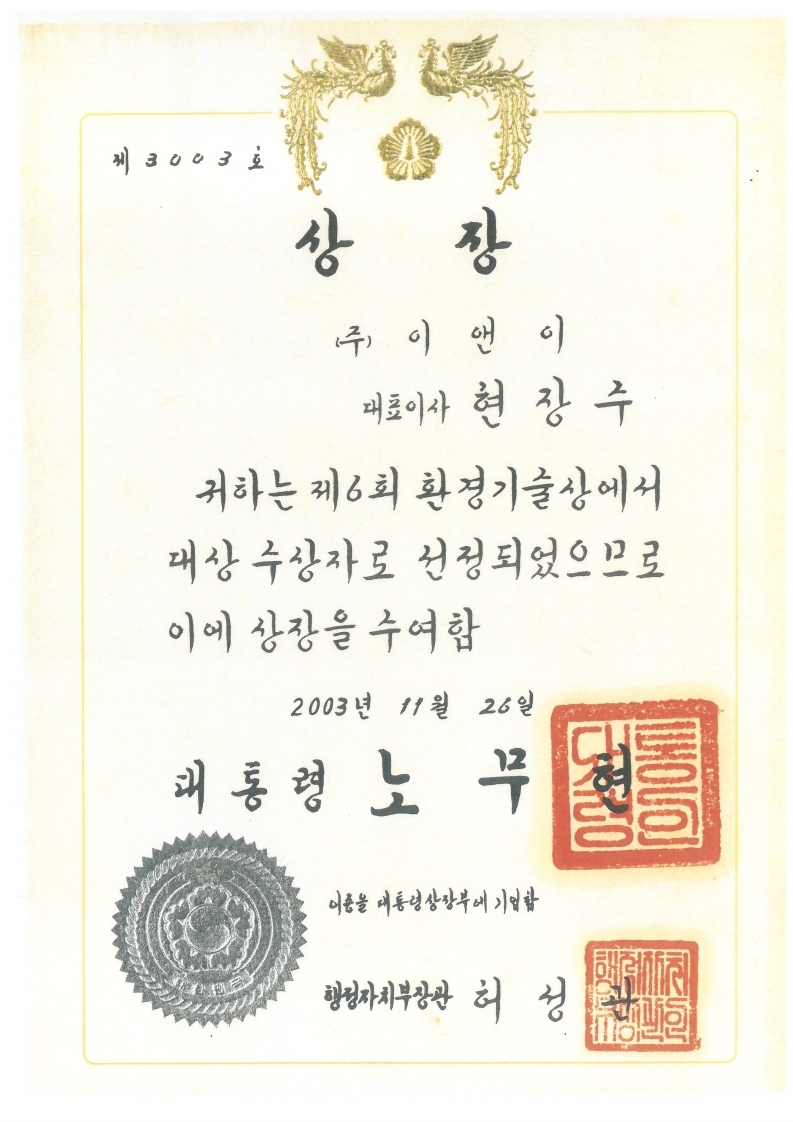 제 3003 호
상 장
(주) 이 앤 이
대표이사 현 장 수
귀하는 제6회 환경기술상에서
대상 수상자로 선정되었으므로
이에 상장을 수여함
2003년 11월 26일
대통령 노 무 현
이증을 대통령상장부에 기입함
행정자치부장관 허 성 관